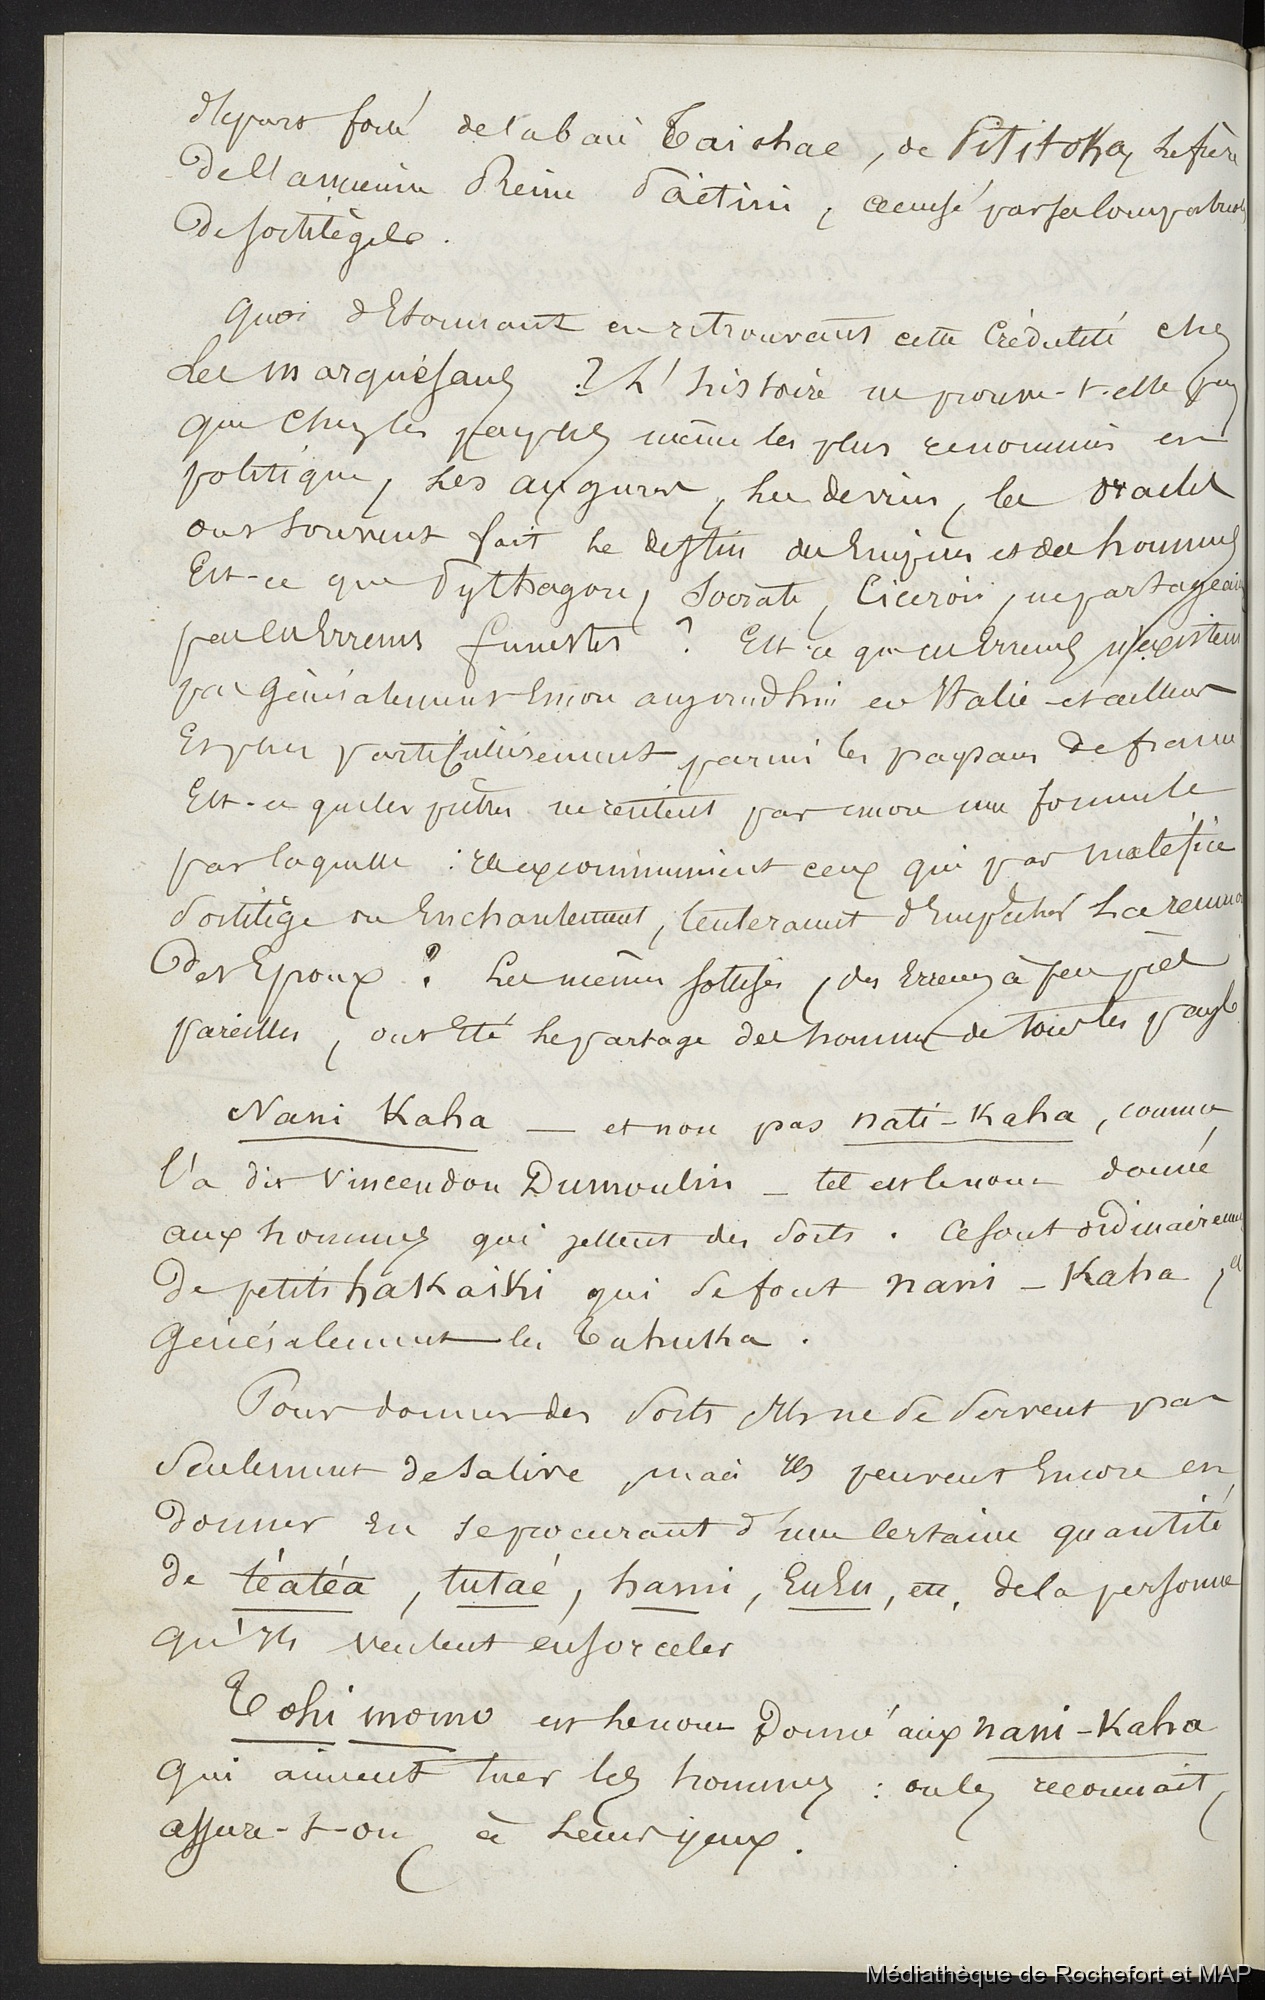 départ forcé de la baie Taiohae, de Pititoka, le frère
De l'ancienne Reine Paetini, accusé par ses compatriotes
De sortilèges.
Quoi d'Etonnant en retrouvant cette Crédulité chez
Les marquésans ? L'histoire ne prouve-t-elle pas
que Chez les peuples même les plus renommés en
politique, Les augures, les devins, les oracles
ont souvent fait le destin des Empires et des hommes
Est-ce que Pythagore, Socrate, Ciceron, ne partageaient
pas ces Erreurs funestes ? Est-ce que ces Erreurs n'existent
pas généralement Encore aujourd'hui en Italie et ailleurs
Et plus particulièrement parmi les paysans de france
Est-ce que les prêtres ne récitent pas encore une formule
par laquelle : ils excommunient ceux qui par maléfice
Sortilège ou Enchantement, tenteraient d'Empêcher La reunion
Des Epoux ? Les mêmes sottises, des Erreurs à peu près
pareilles, ont Eté le partage des hommes de tous les pays
Nani Kaha — et non pas nati-Kaha, comme
l'a dit Vincendon Dumoulin — tel est le nom donné
aux hommes qui jettent des Sorts. Ce sont ordinairement
De petits hakaiki qui se font nani-Kaha, et
Généralement les Tahutka.
Pour donner des Sorts Ils ne se servent pas
Seulement de salive, mais Ils peuvent Encore en
Donner En se procurant d'une Certaine quantité
De téatéa, tutaé, hami, EuEu, etc. de la personne
qu'Ils veulent ensorceler
Tohi momo est le nom Donné aux nani-Kaha
qui aiment tuer les hommes : on les reconnait,
assure-t-on, à leurs yeux.
Médiathèque de Rochefort et MAP